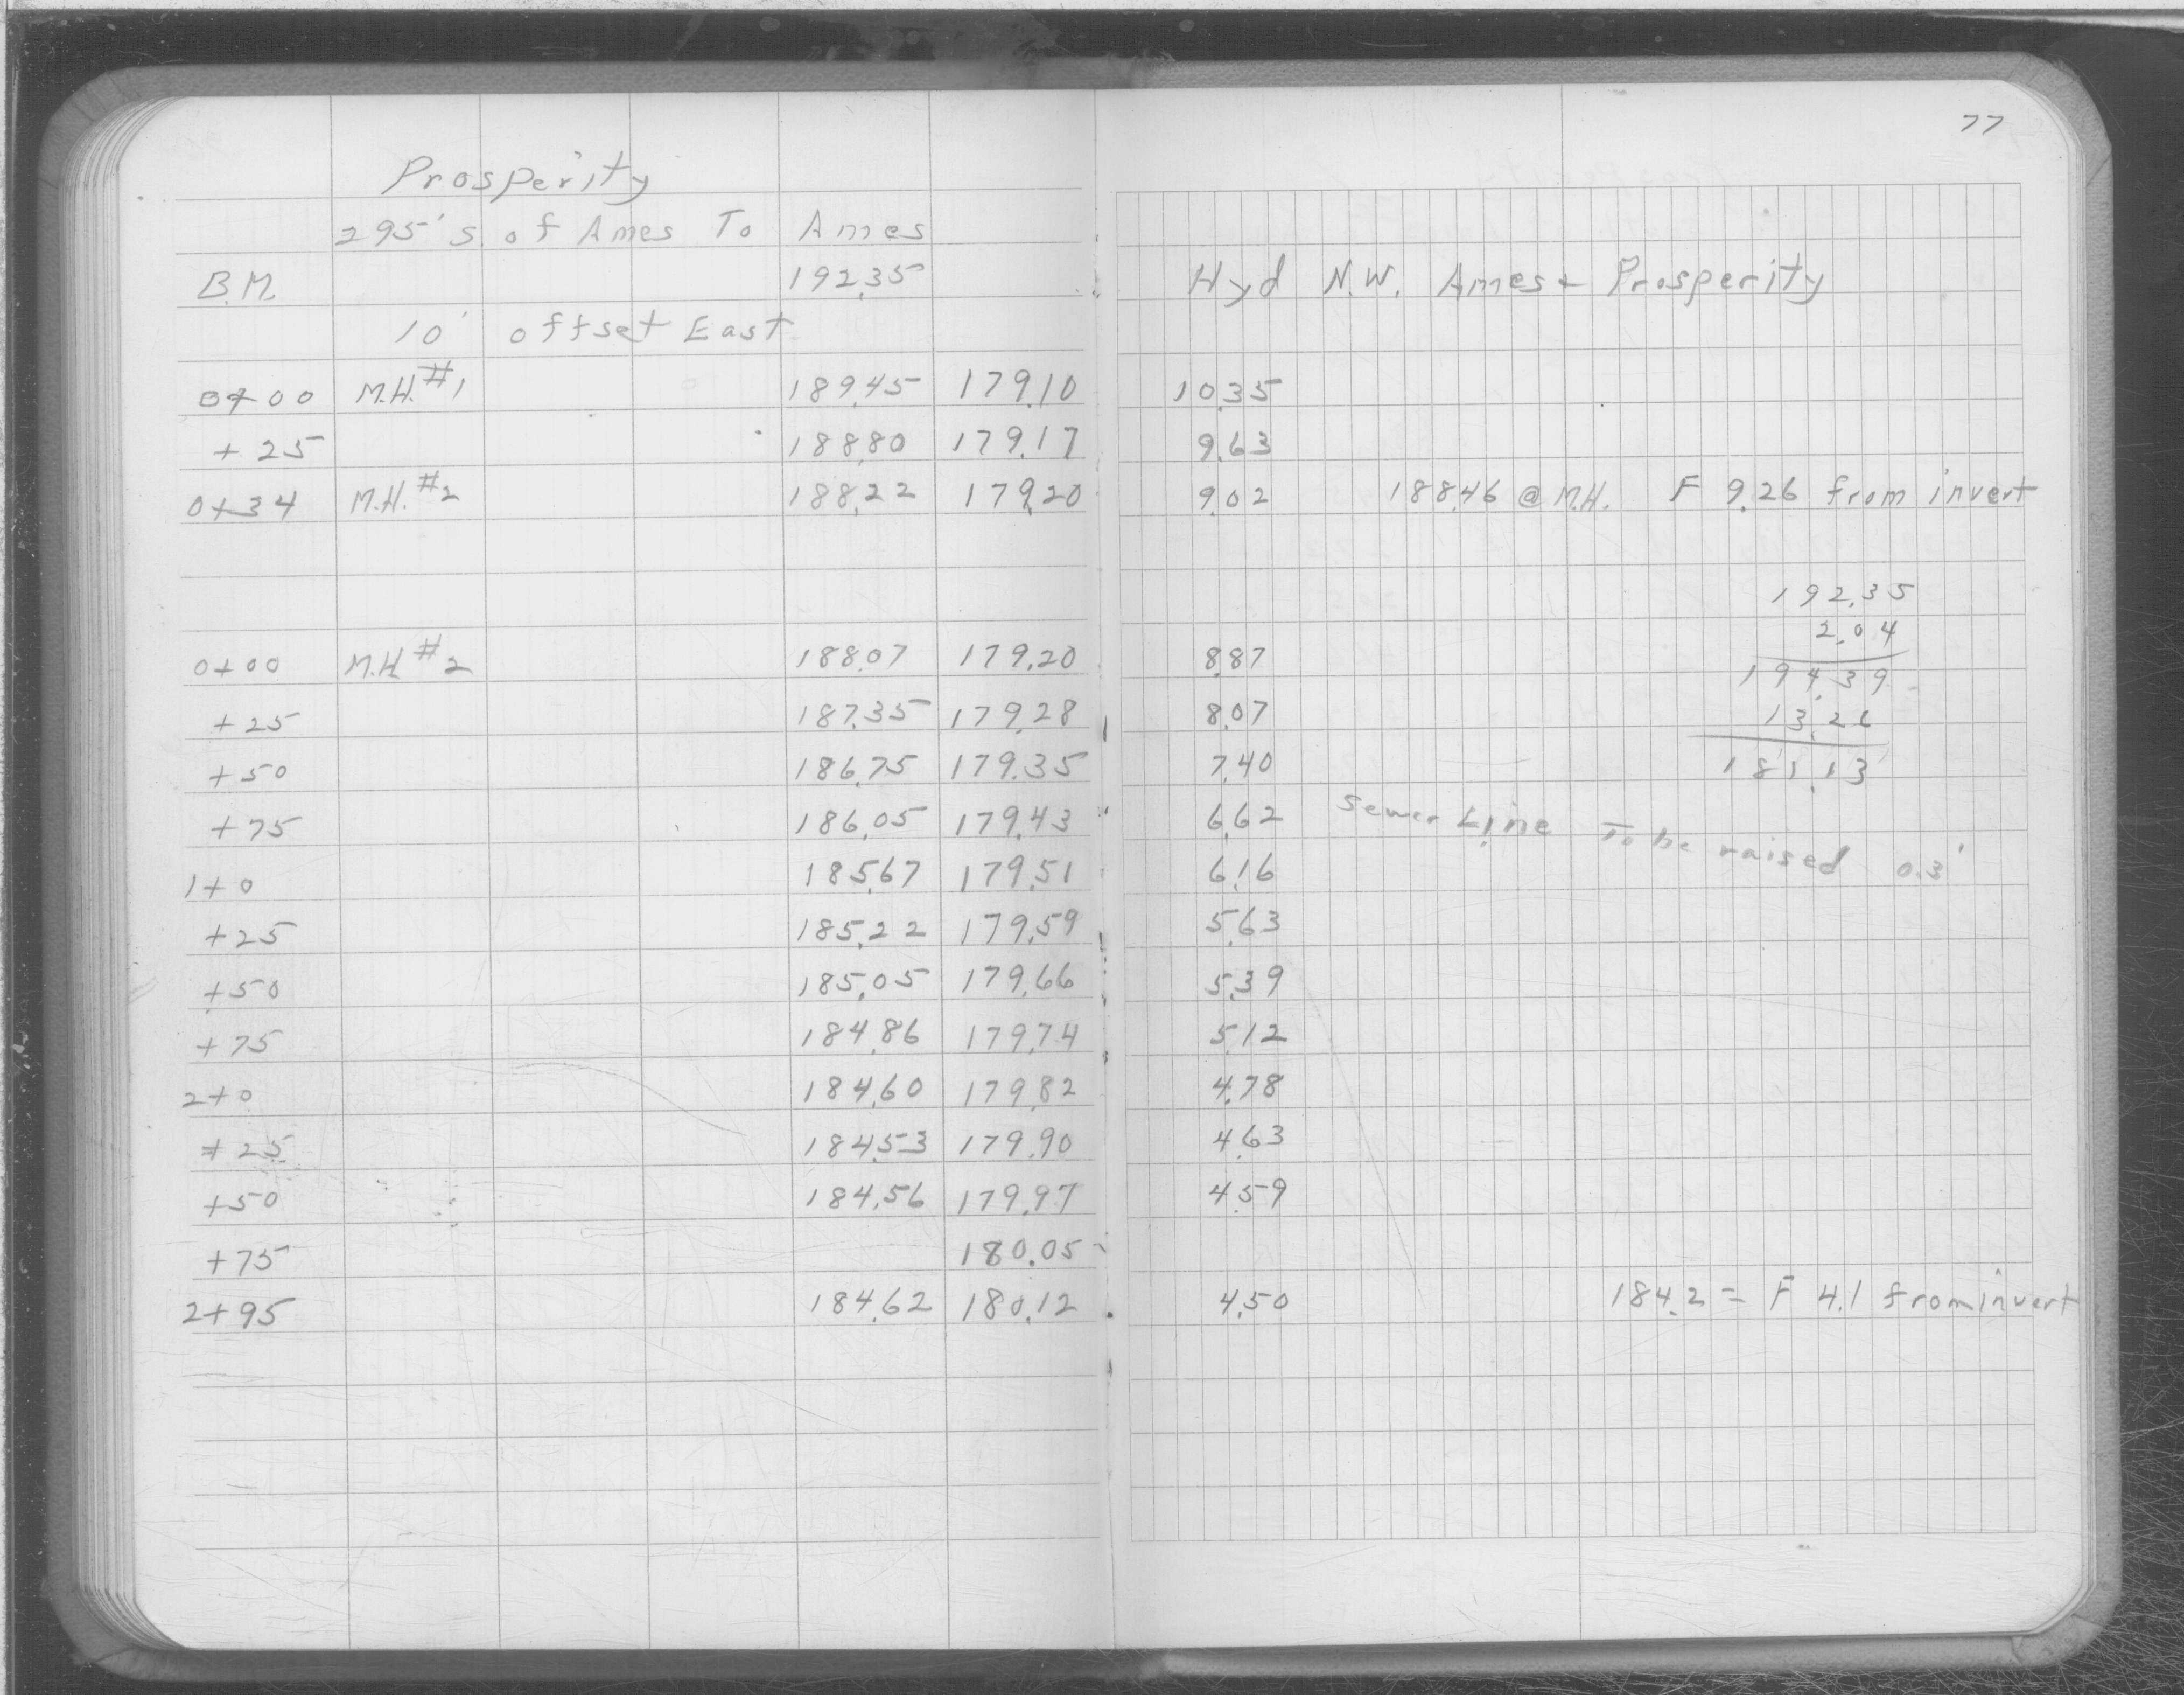 77
Prosperity
295' S. of Ames To Ames
B.M. 192.35 Hyd N.W. Ames + Prosperity
10' offset East
0+00 M.H. #1 189.45 179.10 10.35
+25 188.80 179.17 9.63
0+34 M.H. #2 188.22 179.20 9.02 188.46 @ M.H. F 9.26 from invert
192.35
2.04
0+00 M.H. #2 188.07 179.20 8.87 194.39
+25 187.35 179.28 8.07 13.26
+50 186.75 179.35 7.40 181.13
+75 186.05 179.43 6.62 Sewer Line To be raised 0.3'
1+0 185.67 179.51 6.16
+25 185.22 179.59 5.63
+50 185.05 179.66 5.39
+75 184.86 179.74 5.12
2+0 184.60 179.82 4.78
+25 184.53 179.90 4.63
+50 184.56 179.97 4.59
+75 180.05
2+95 184.62 180.12 4.50 184.2 = F 4.1 from invert